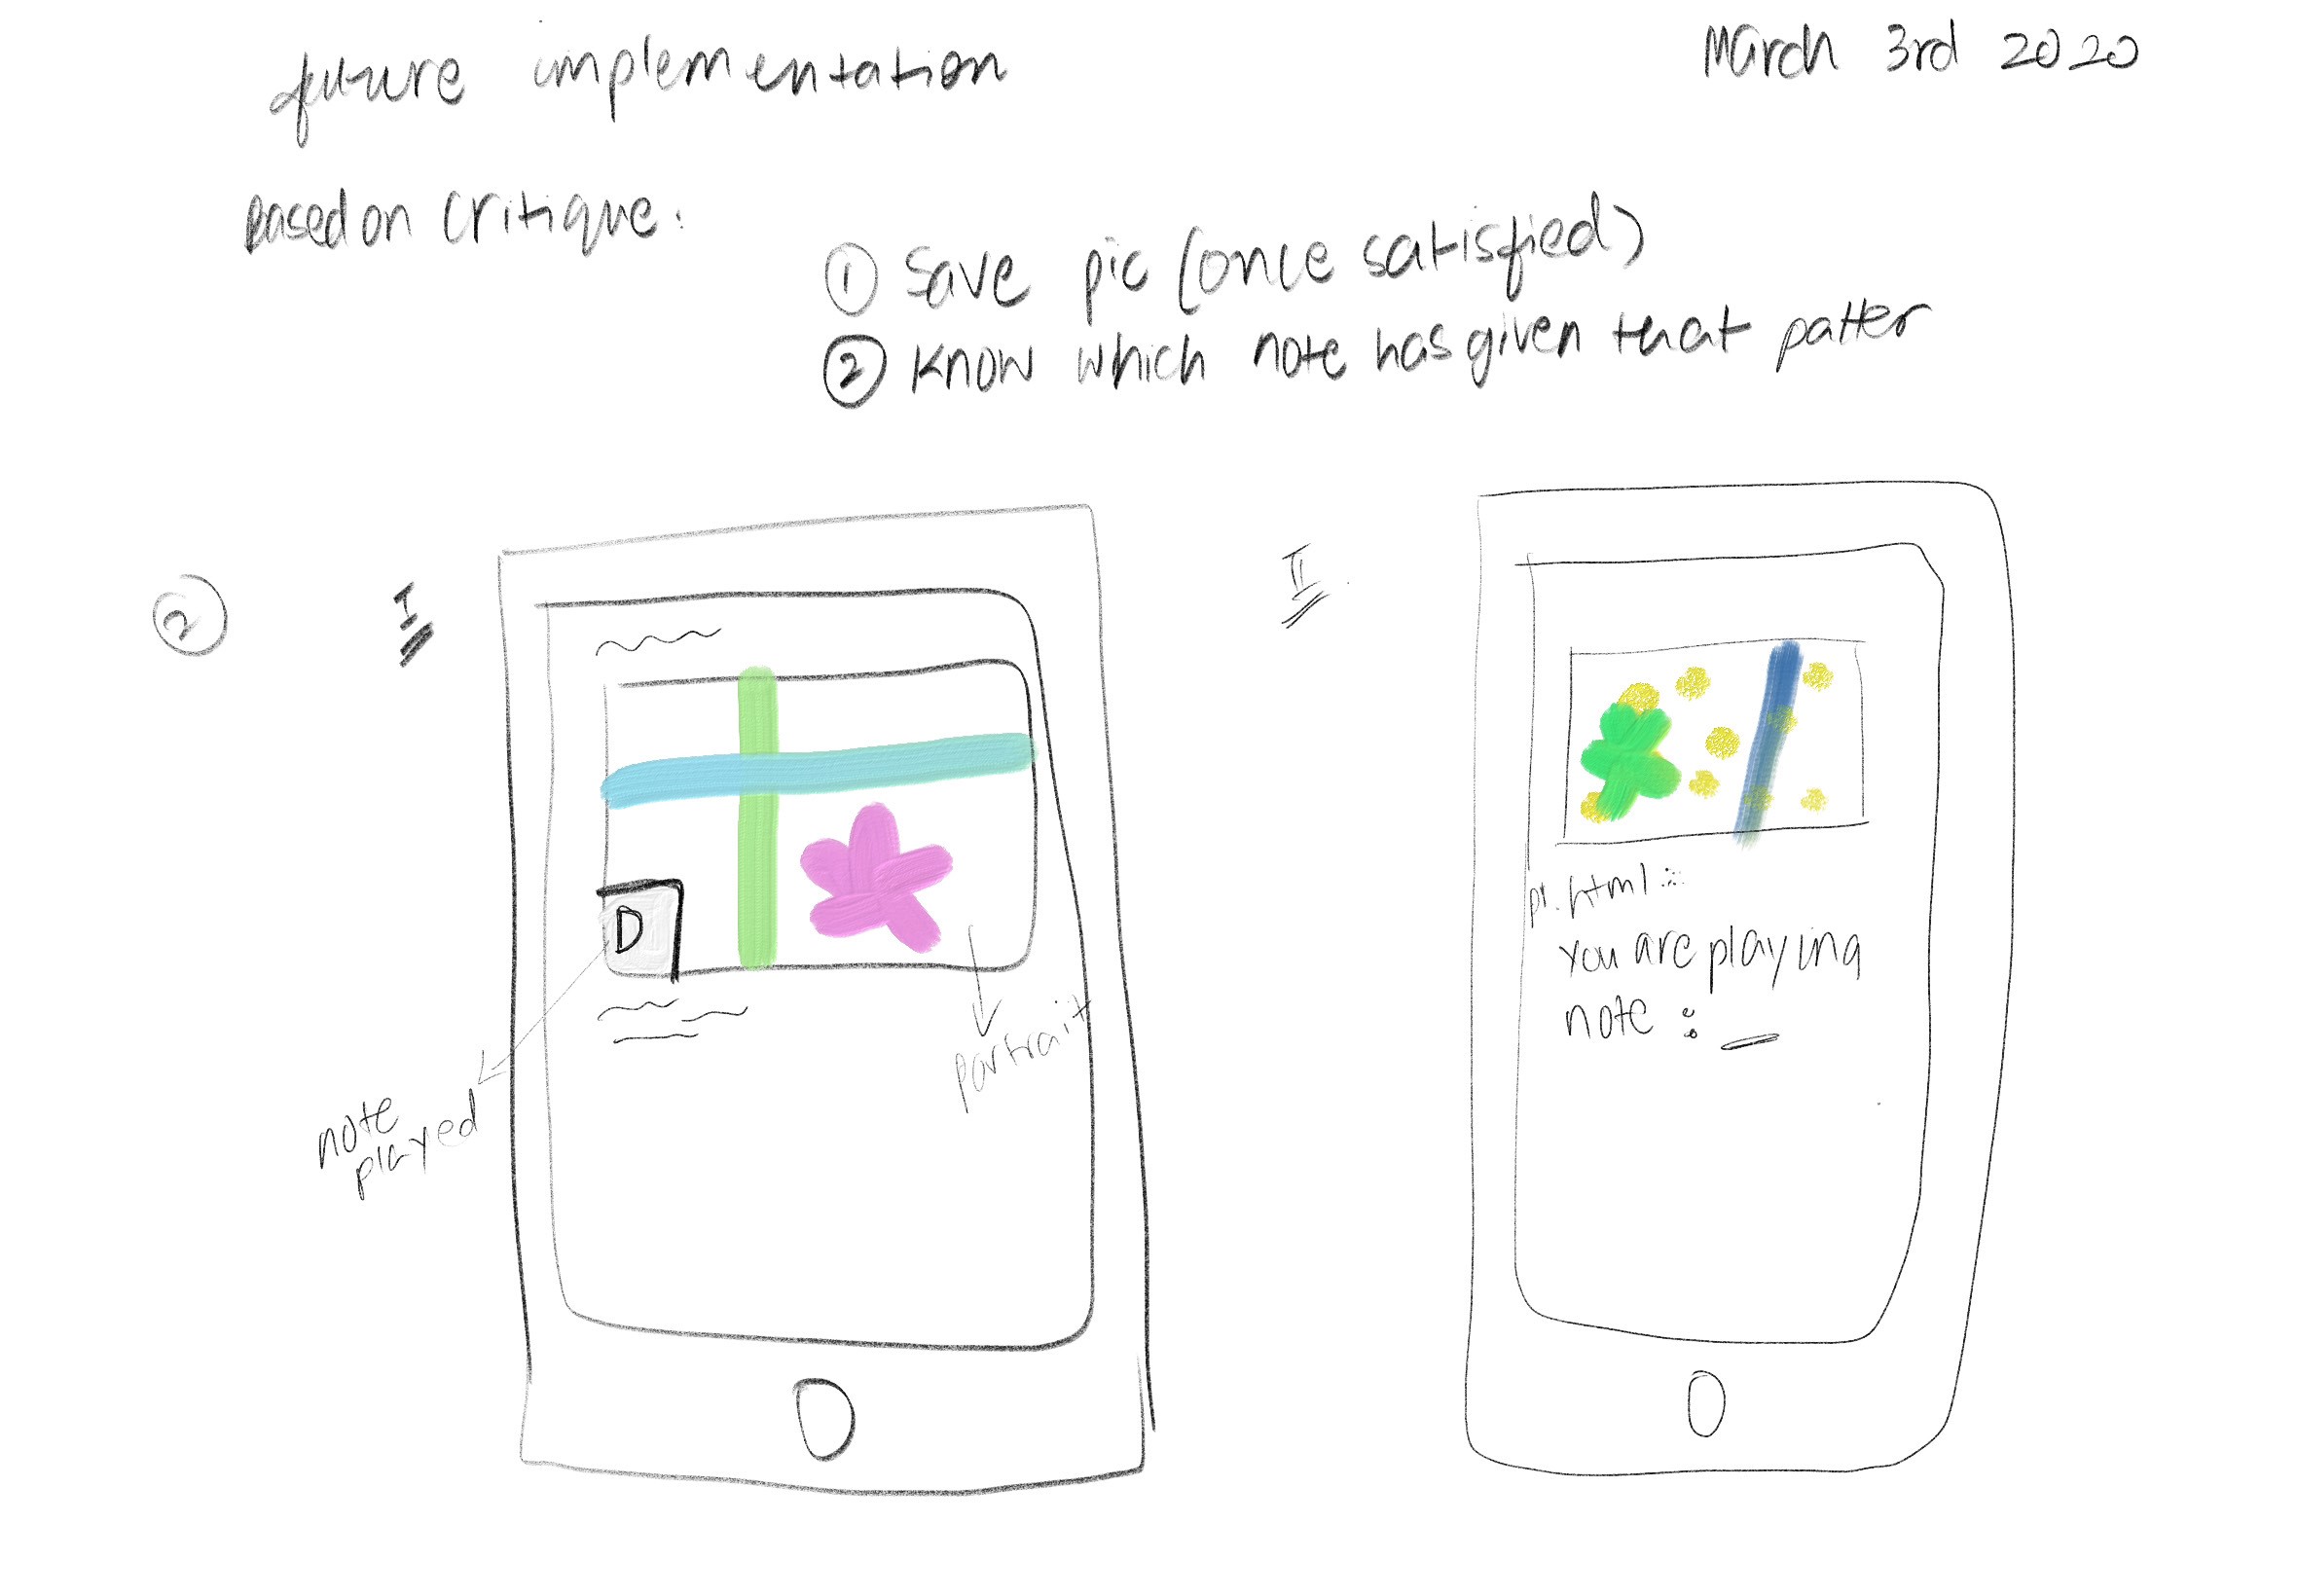 future implementation
March 3rd 2020
Based on Critique:
① Save pic (once satisfied)
② Know which note has given that patter
②
I
II.
D
note
played
portrait
p5.html:
You are playing
note : _